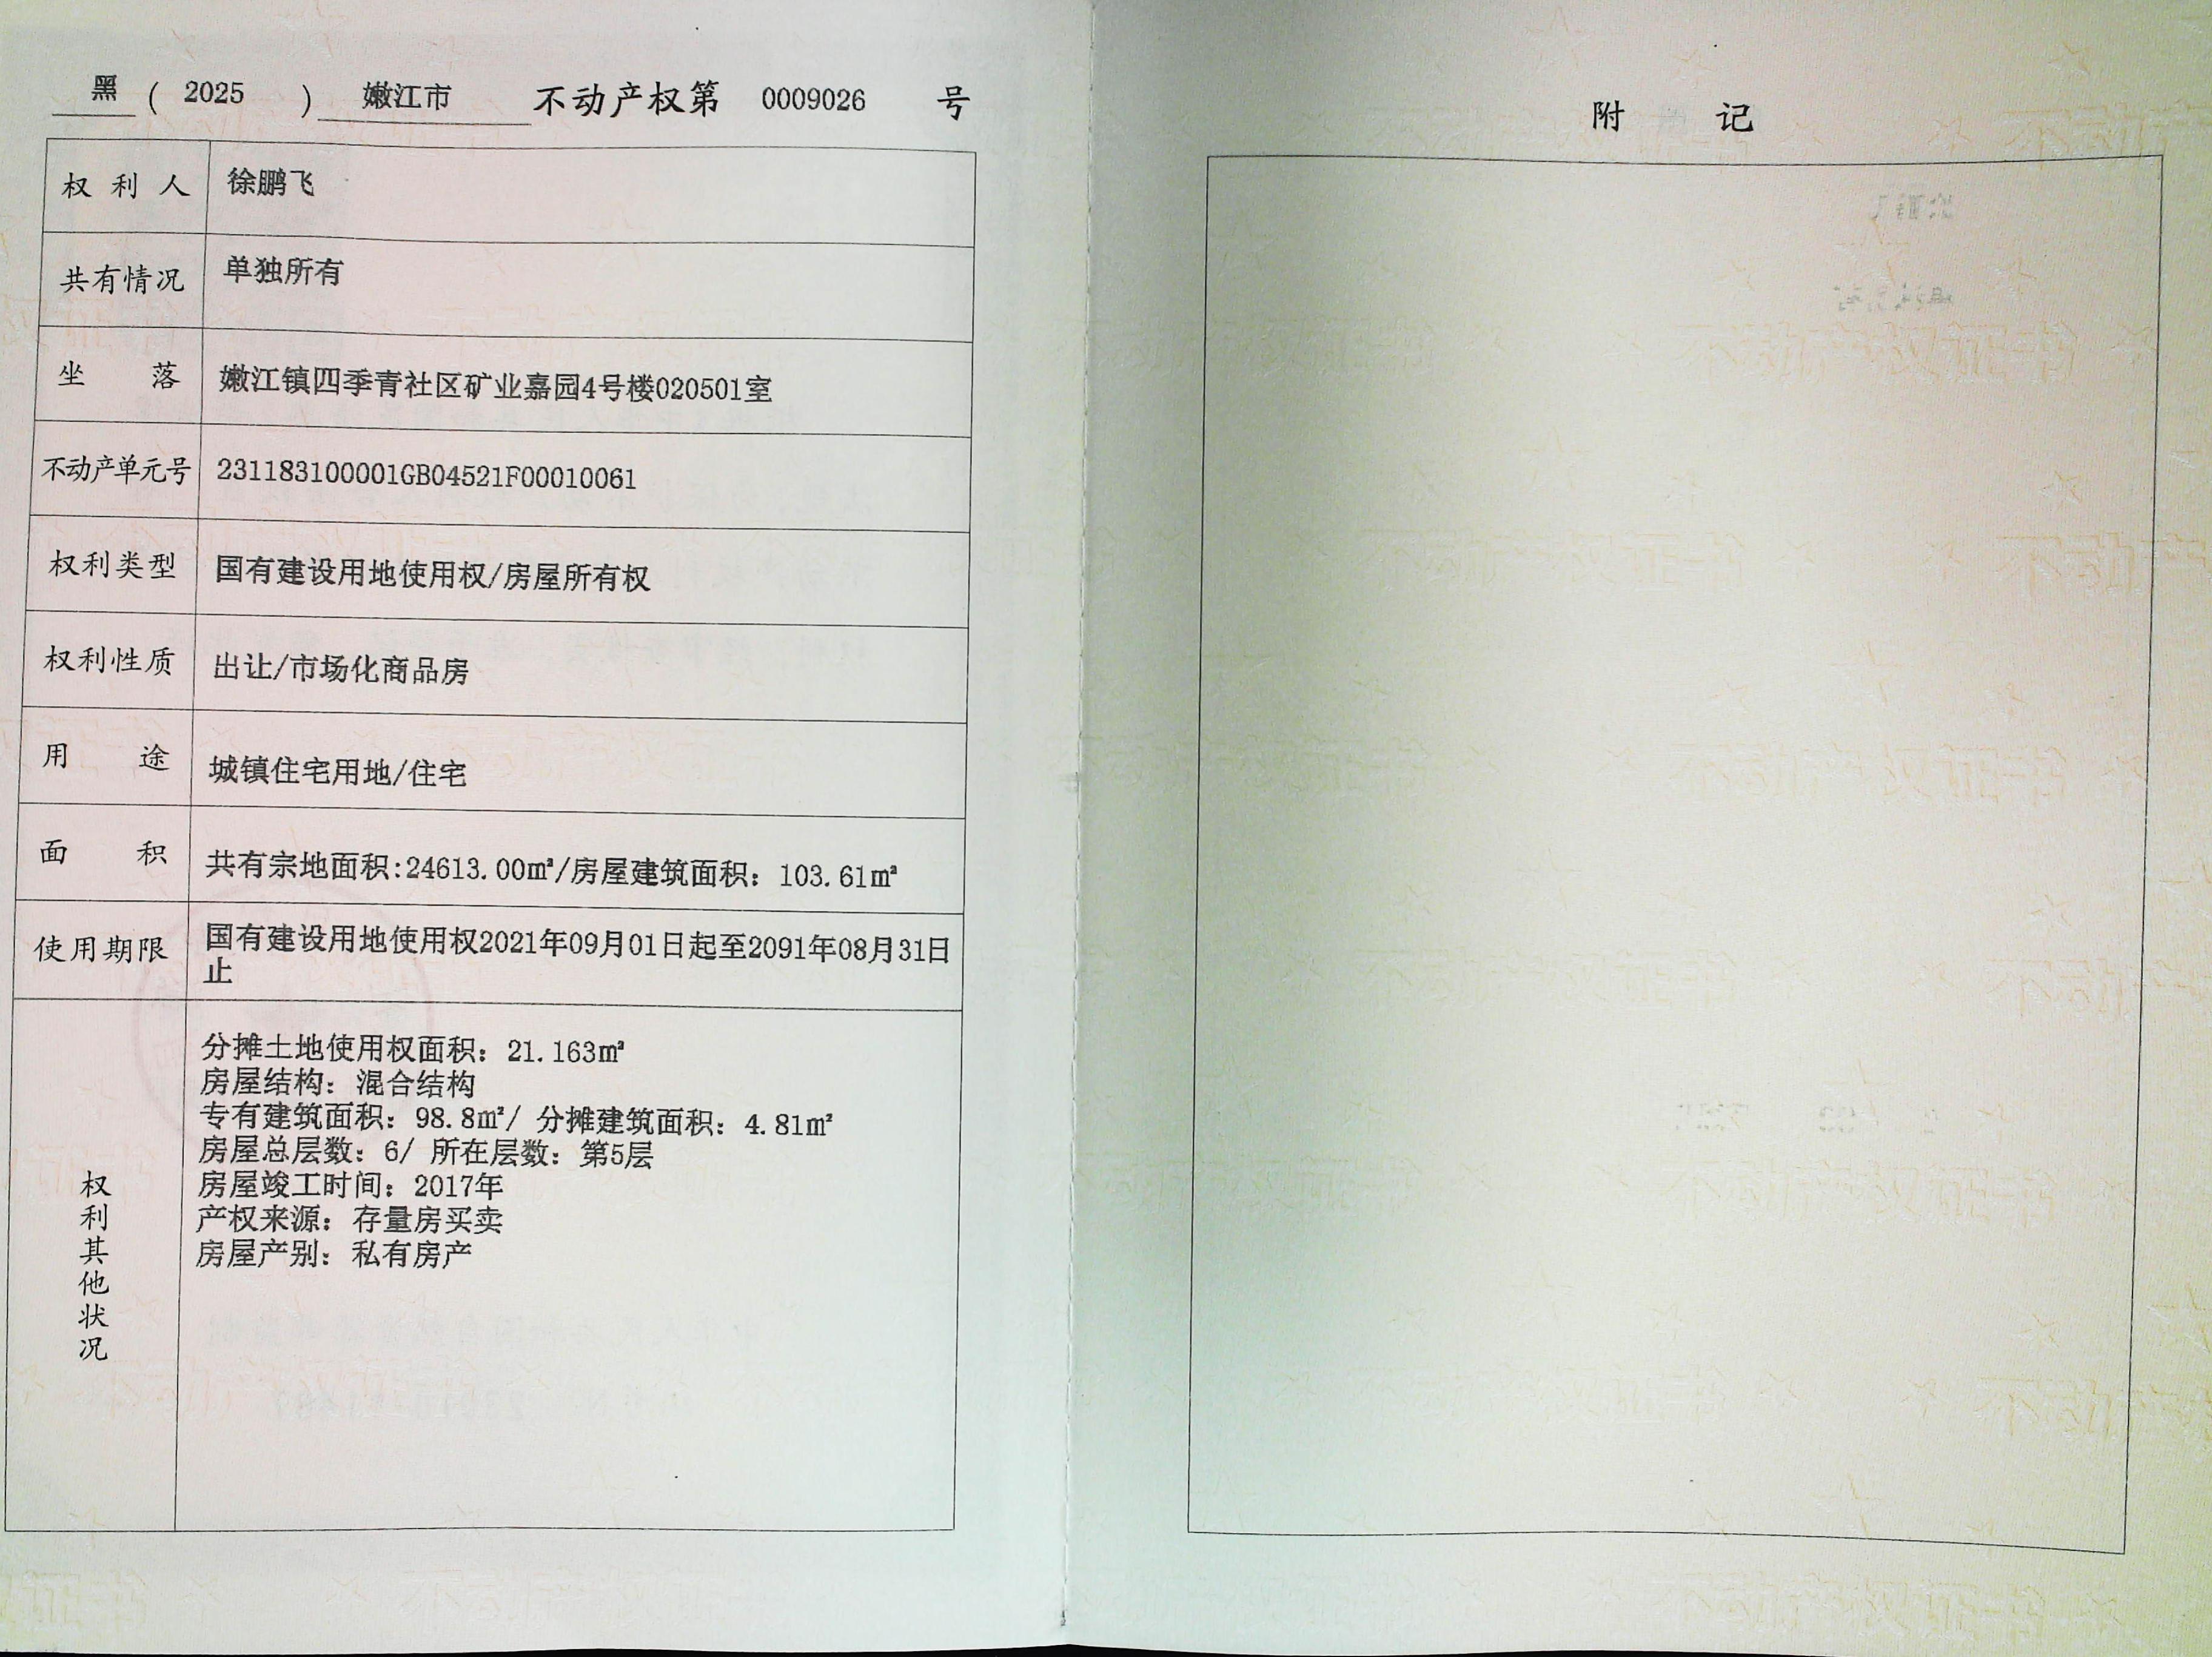 黑 ( 2025 ) 嫩江市 不动产权第 0009026 号
权利人 徐鹏飞
共有情况 单独所有
坐落 嫩江镇四季青社区矿业嘉园4号楼020501室
不动产单元号 231183100001GB04521F00010061
权利类型 国有建设用地使用权/房屋所有权
权利性质 出让/市场化商品房
用途 城镇住宅用地/住宅
面积 共有宗地面积:24613.00㎡/房屋建筑面积：103.61㎡
使用期限 国有建设用地使用权2021年09月01日起至2091年08月31日
止
权利其他状况
分摊土地使用权面积：21.163㎡
房屋结构：混合结构
专有建筑面积：98.8㎡/ 分摊建筑面积：4.81㎡
房屋总层数：6/ 所在层数：第5层
房屋竣工时间：2017年
产权来源：存量房买卖
房屋产别：私有房产
附记